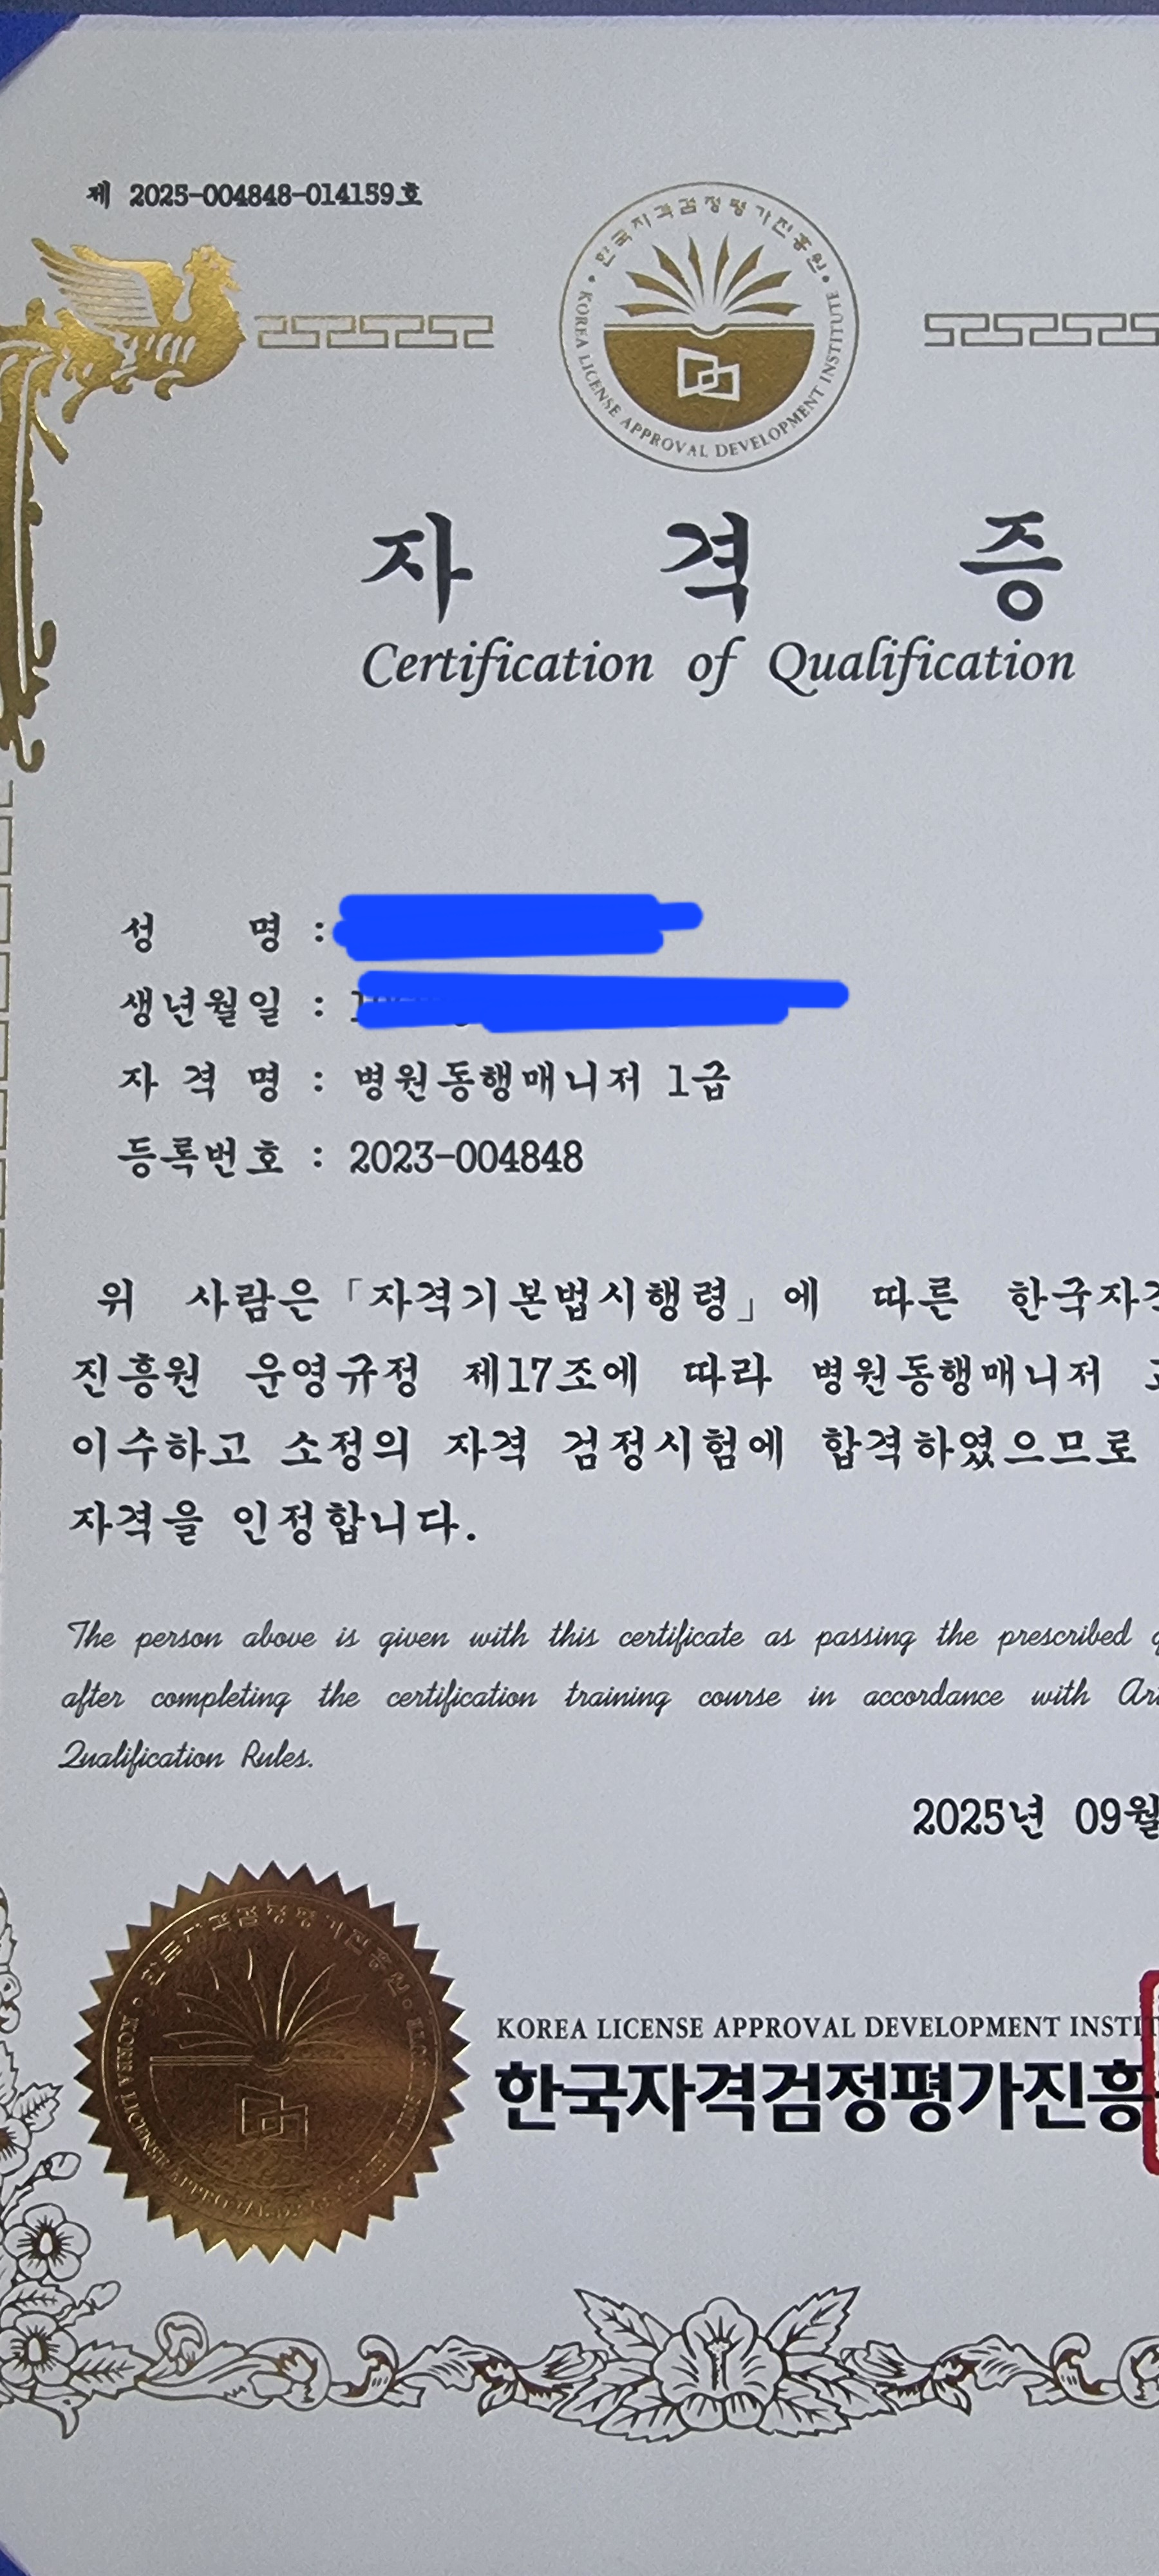 제 2025-004848-014159호
한국자격검정평가진흥원
KOREA LICENSE APPROVAL DEVELOPMENT INSTITUTE
자 격 증
Certification of Qualification
성 명 :
생년월일 :
자 격 명 : 병원동행매니저 1급
등록번호 : 2023-004848
위 사람은「자격기본법시행령」에 따른 한국자격
진흥원 운영규정 제17조에 따라 병원동행매니저
이수하고 소정의 자격 검정시험에 합격하였으므로
자격을 인정합니다.
The person above is given with this certificate as passing the prescribed
after completing the certification training course in accordance with
Qualification Rules.
2025년 09월
한국자격검정평가진흥원
KOREA LICENSE APPROVAL DEVELOPMENT INSTITUTE
KOREA LICENSE APPROVAL DEVELOPMENT INSTIT
한국자격검정평가진흥